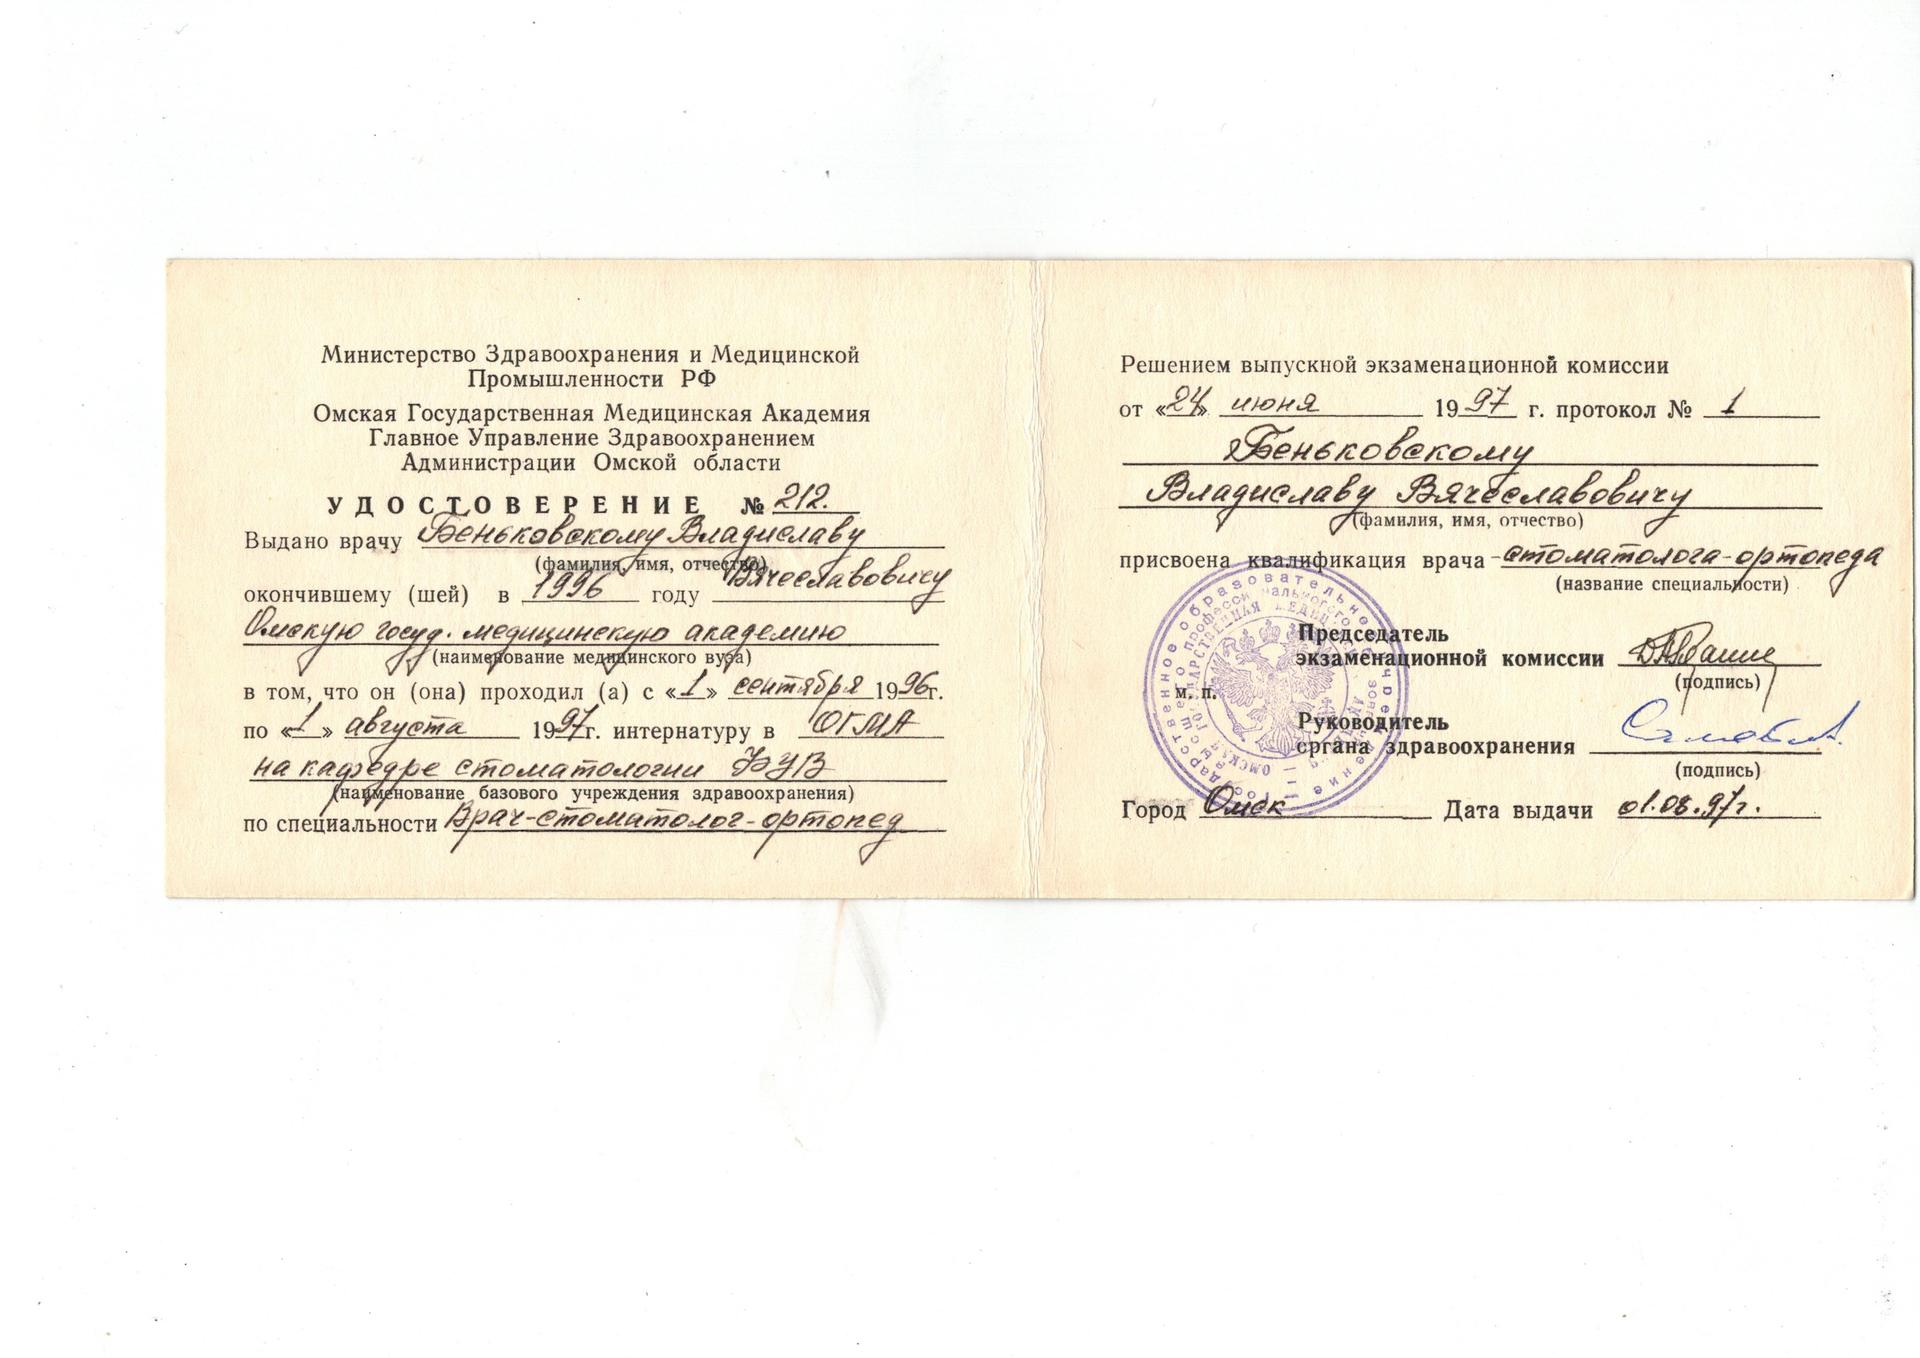 Министерство Здравоохранения и Медицинской
Промышленности РФ
Омская Государственная Медицинская Академия
Главное Управление Здравоохранением
Администрации Омской области
УДОСТОВЕРЕНИЕ № 212.
Выдано врачу Беньковскому Владиславу
(фамилия, имя, отчество)
Вячеславовичу
окончившему (шей) в 1996 году
Омскую госуд. медицинскую академию
(наименование медицинского вуза)
в том, что он (она) проходил (а) с «1» сентября 1996г.
по «1» августа 1997г. интернатуру в ОГМА
на кафедре стоматологии
(наименование базового учреждения здравоохранения)
по специальности Врач-стоматолог-ортопед
Решением выпускной экзаменационной комиссии
от «24» июня 1997 г. протокол № 1
Беньковскому
Владиславу Вячеславовичу
(фамилия, имя, отчество)
присвоена квалификация врача-стоматолога-ортопеда
(название специальности)
Председатель
экзаменационной комиссии
(подпись)
м. п.
Руководитель
органа здравоохранения
(подпись)
Город Омск Дата выдачи 01.08.97г.